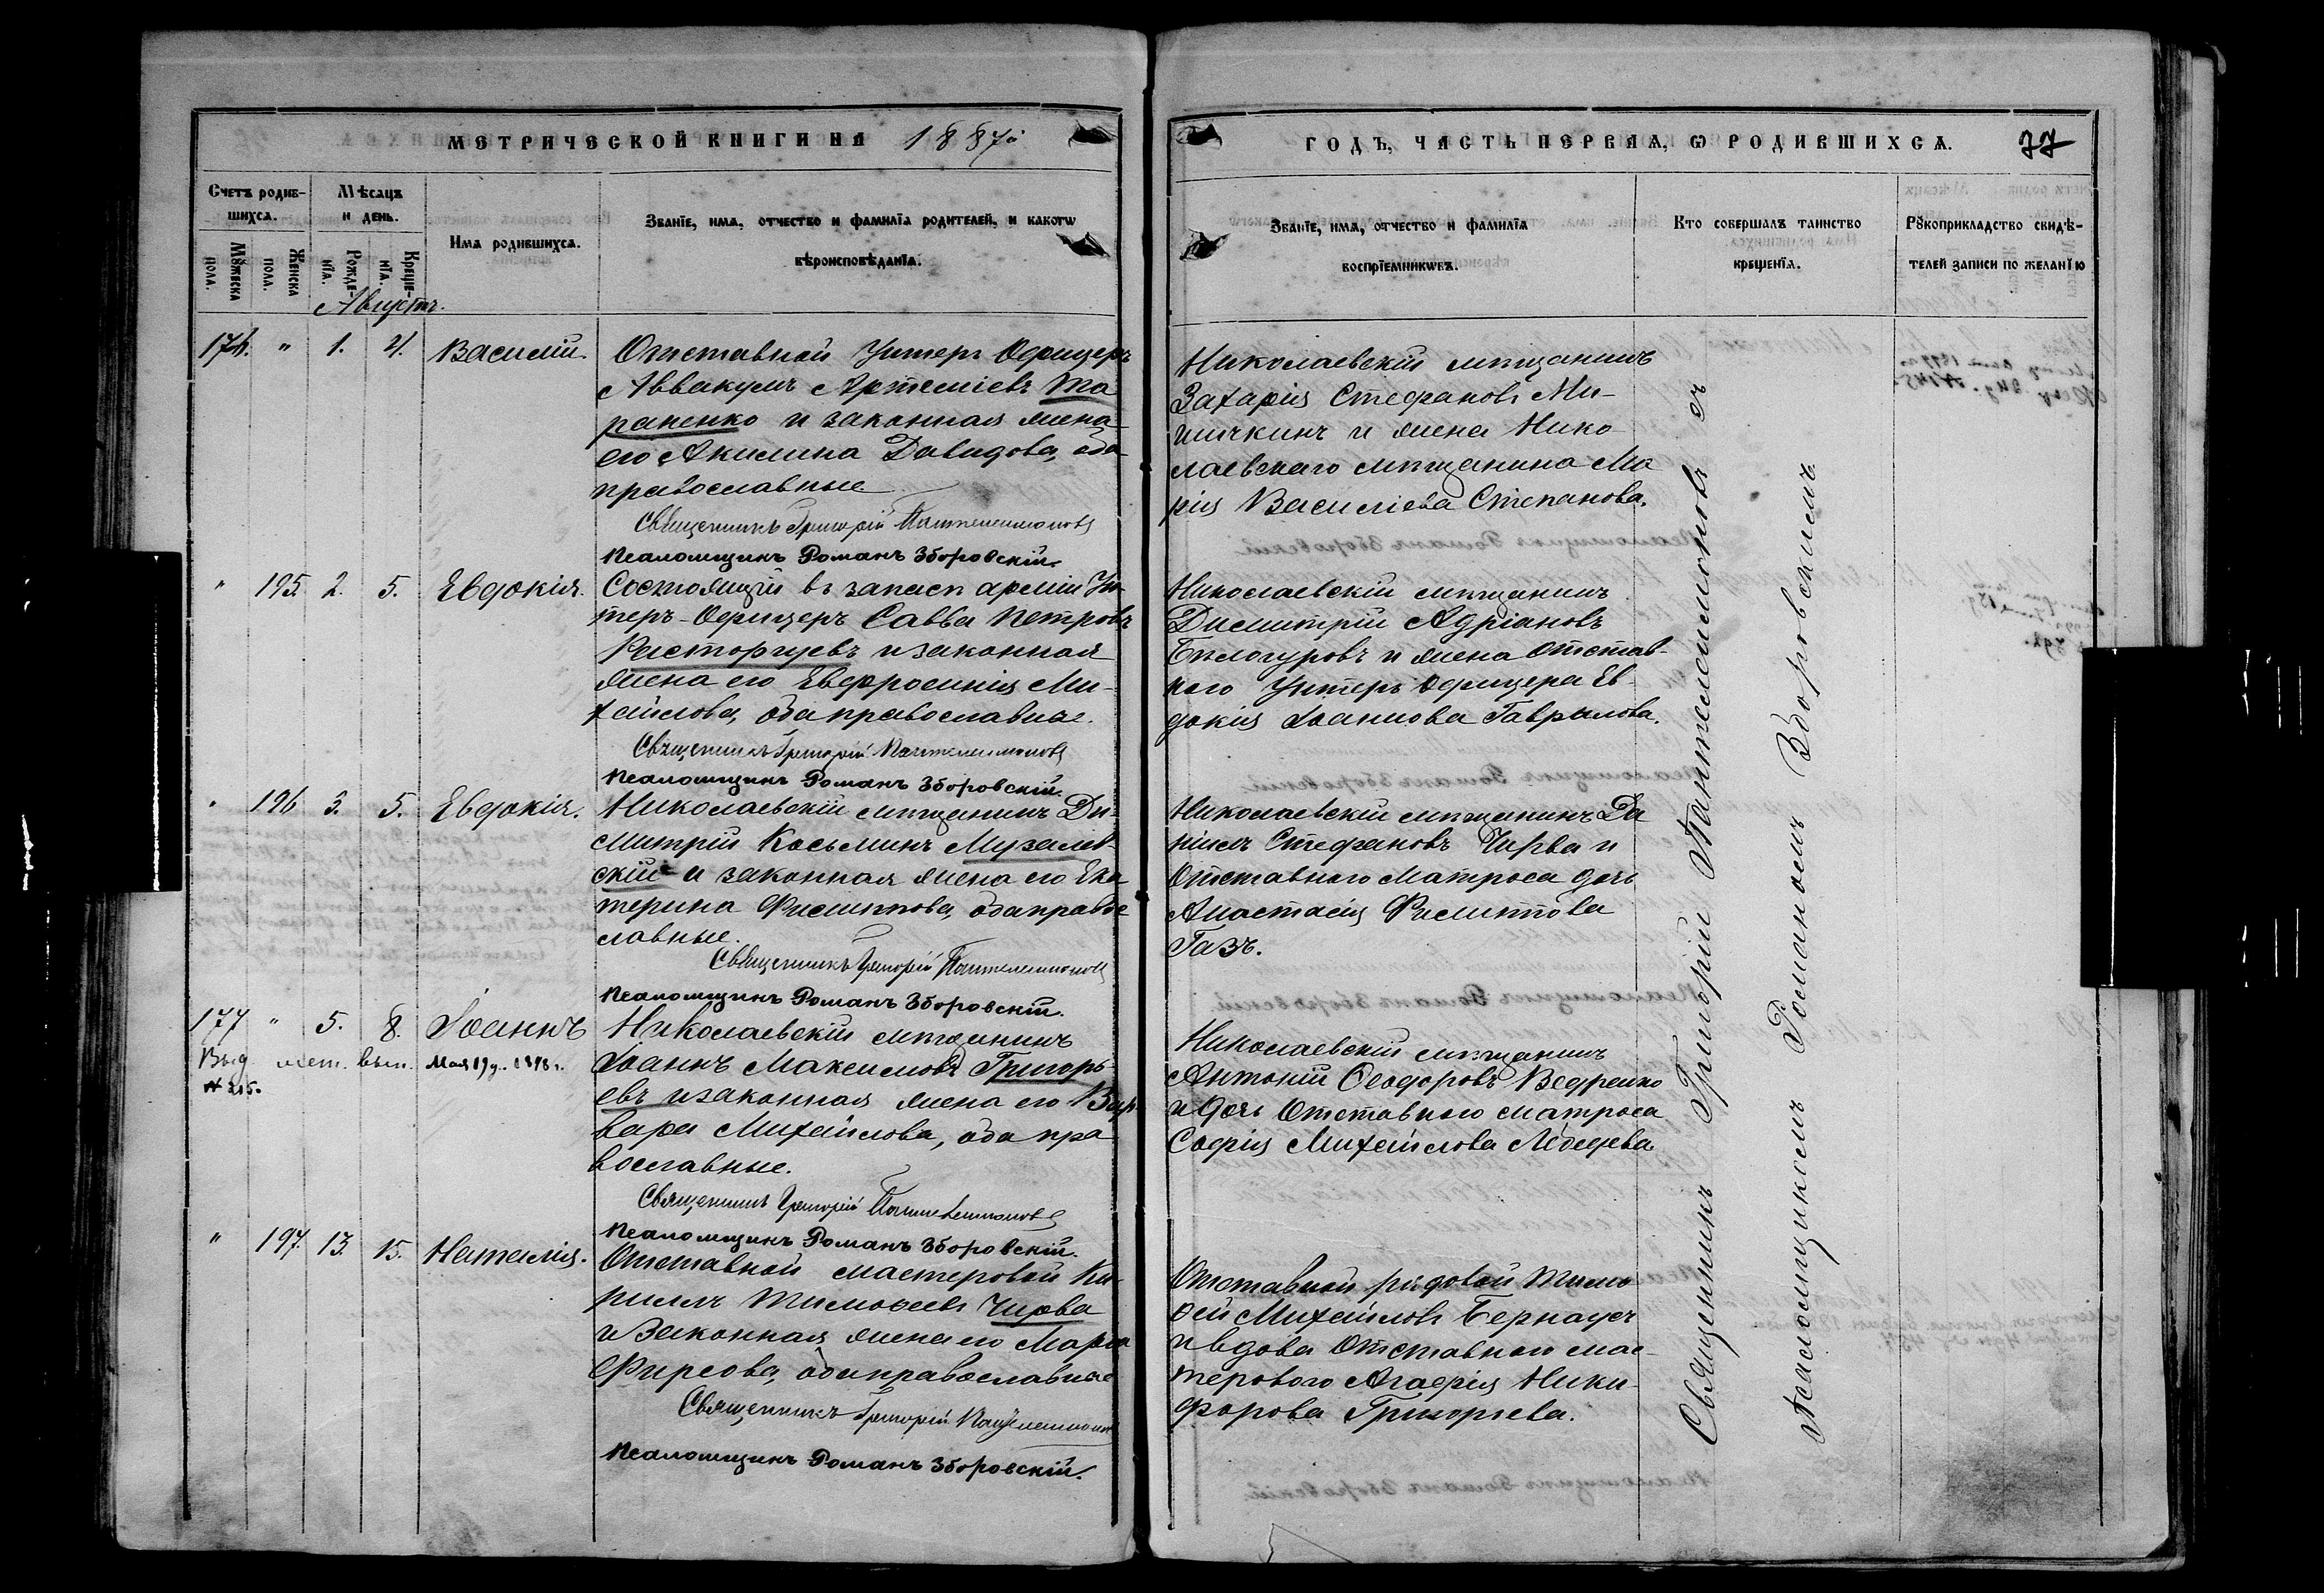 МЕТРИЧЕСКОЙ КНИГИ НА 1887й
ГОДЪ, ЧАСТЬ ПЕРВАЯ, Ѡ РОДИВШИХСѦ. 77
Счетъ родив-
шихсѧ.
Мꙋжеска
пола.
Женска
пола.
Мѣсѧцъ
и день.
Рожде-
нїѧ.
Креще-
нїѧ.
Имѧ родившихсѧ.
Званїе, имѧ, отчество и фамилїѧ родителей, и какогѡ
вѣроисповѣданїѧ.
Званїе, имѧ, отчество и фамилїѧ
воспрїемникѡвъ.
Кто совершалъ таинство
крещенїѧ.
Рꙋкоприкладство свидѣ-
телей записи по желанїю
Августъ.
176. " 1. 4. Василій.
Отставной Унтеръ Офицеръ
Аввакумъ Артеміевъ Та
раненко и законная жена
его Акилина Давидова, оба
православные
Священникъ Григорій Пантелеимоновъ
Псаломщикъ Романъ Зборовскій.
Николаевскій мѣщанинъ
Захарія Стефановъ Ми-
шичкинъ и жена Нико
лаевскаго мѣщанина Ма
рія Василіева Степанова.
" 195. 2. 5. Евдокія.
Состоящій въ запасѣ арміи Ун-
теръ-Офицеръ Савва Петровъ
Расторгуевъ и законная
жена его Евфросинія Ми-
хайлова, оба православные.
Священникъ Григорій Пантелеимоновъ
Псаломщикъ Романъ Зборовскій.
Николаевскій мѣщанинъ
Димитрій Адріановъ
Бѣлогуровъ и жена Отстав-
ного Унтеръ Офицера Ев-
докія Іоаннова Гаврылова.
" 196 3. 5. Евдокія.
Николаевскій мѣщанинъ Ди-
митрій Косьминъ Музалев-
скій и законная жена его Ека
терина Филиппова, оба право
славные.
Священникъ Григорій Пантелеимоновъ
Псаломщикъ Романъ Зборовскій.
Николаевскій мѣщанинъ Да
ніилъ Стефановъ Чирва и
Отставного Матроса дочь
Анастасія Филиппова
Газъ.
177 " 5. 8. Іоаннъ
Выд. мет. вып. Мая 19 д. 1898 г.
№ 215.
Николаевскій мѣщанинъ
Іоаннъ Максимовъ Григорь-
евъ и законная жена его Вар
вара Михайлова, оба пра
вославные.
Священникъ Григорій Пантелеимоновъ
Псаломщикъ Романъ Зборовскій.
Николаевскій мѣщанинъ
Антоній Ѳеодоровъ Ведренко
и дочь Отставного матроса
Софія Михайлова Лебедева
" 197. 13. 15. Наталія.
Отставной мастеровой Ки-
риллъ Тимоѳеевъ Чирва
и законная жена его Марѳа
Фирсова, оба православные
Священникъ Григорій Пантелеимоновъ
Псаломщикъ Романъ Зборовскій.
Отставной рядовой Тимо
ѳей Михайловъ
и вдова Отставного мас-
терового Агафія Ники-
форова Григорьева.
Священникъ Григорій Пантелеимоновъ съ
Псаломщикомъ Романомъ Зборовскимъ